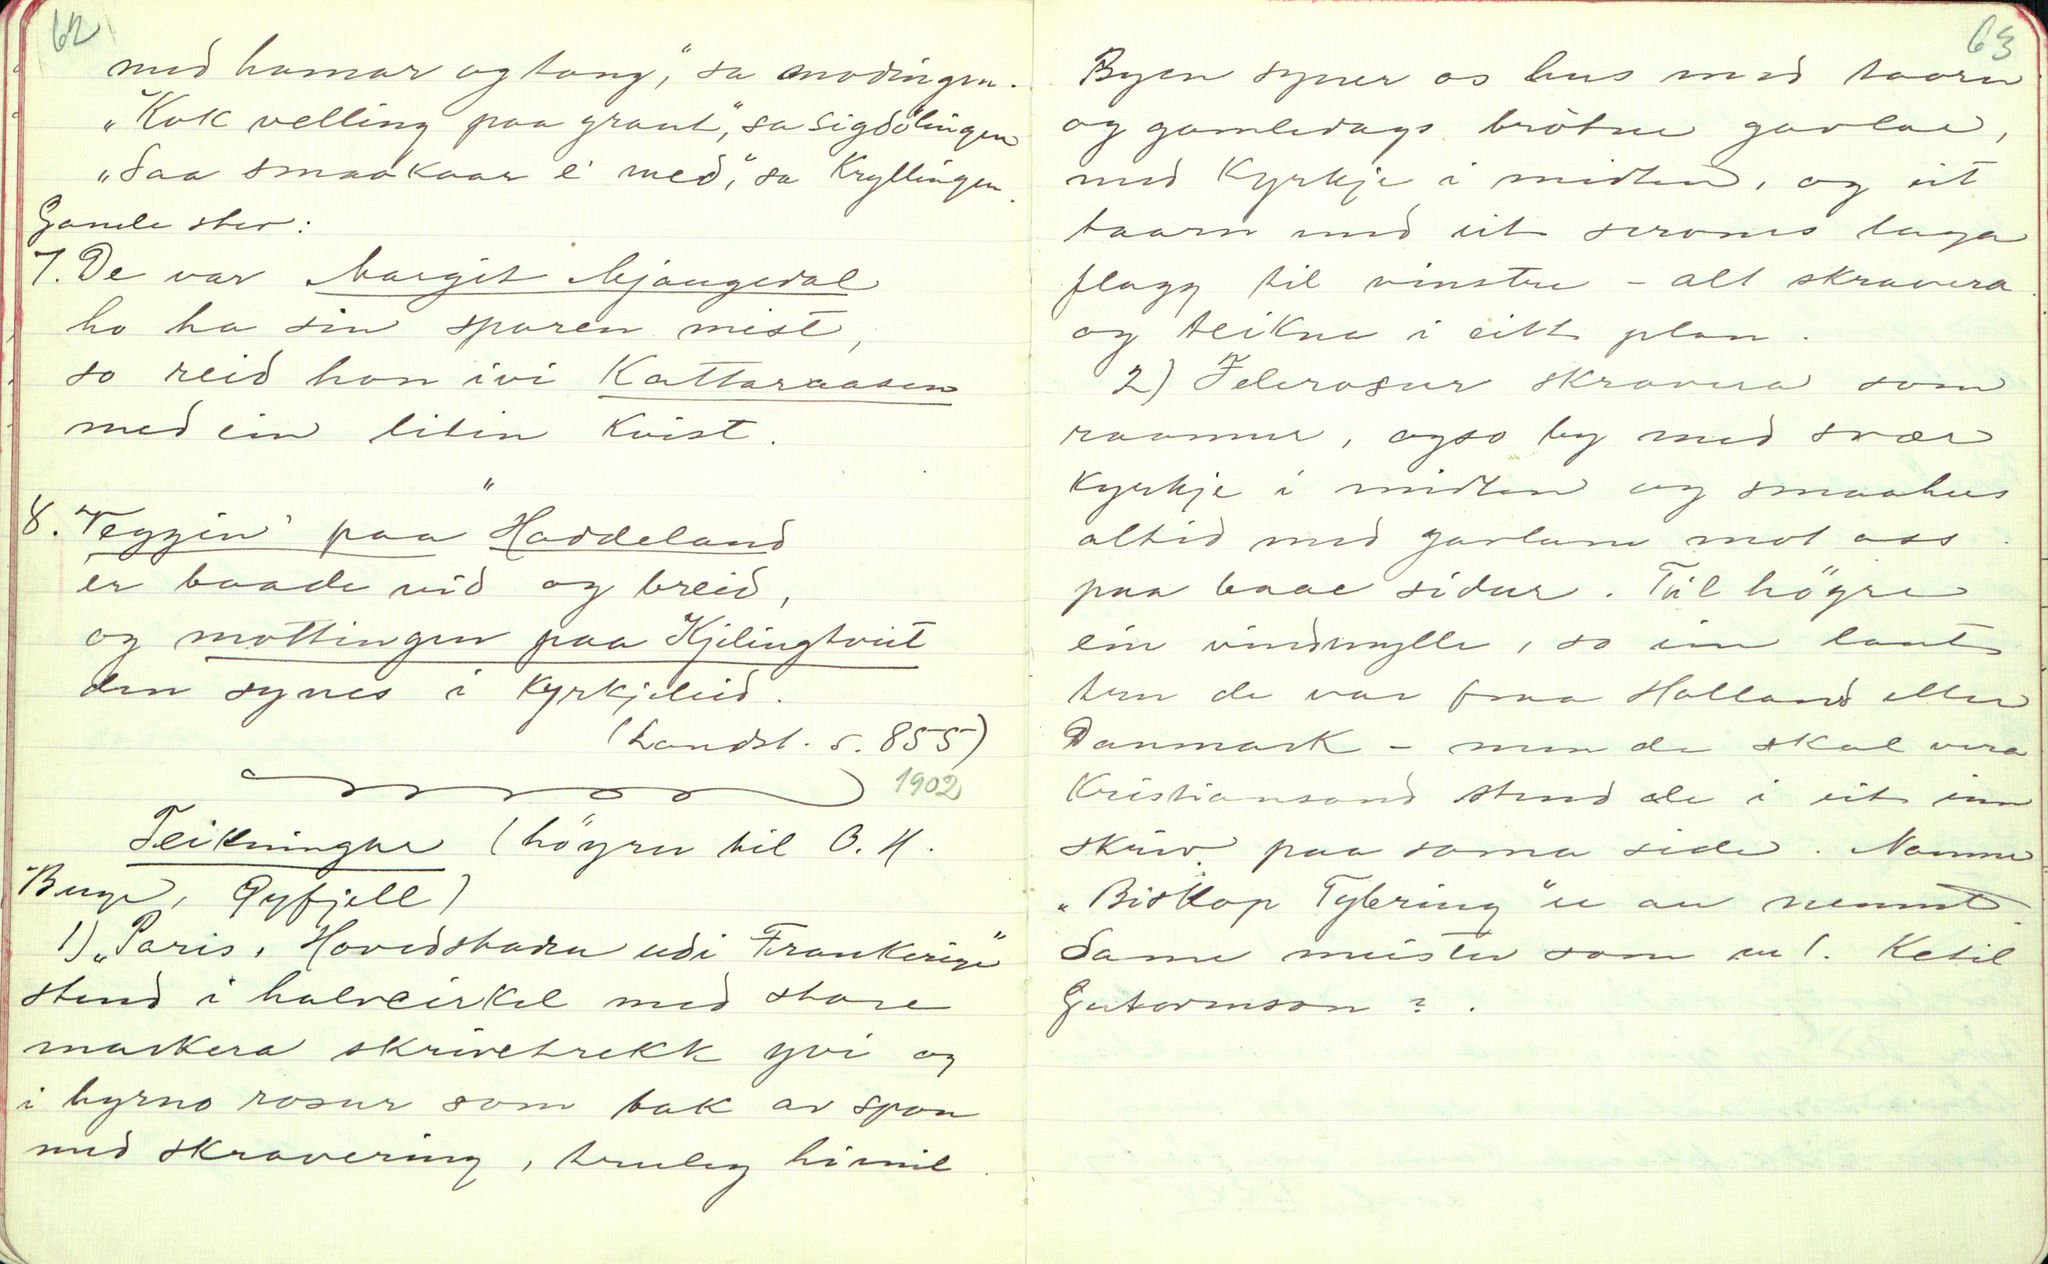 62
med hamar og tang," sa modingen.
"Kok velling paa graut," sa Sigdölingen
"Saa smaakaar é med," sa Kryllingen.
Gamle stev:
7. De var Margit Mjaugedal
ho ha sin sporen mist,
so reid hon ivi Kattaraasen
med ein liten kvist.
"
8. Teggin' paa Haddeland
er baade vid og breid,
og mottingen paa Kjilingtveit
den synes i Kyrkjeleid.
(Landst. s. 855)
1902
Teikningar (höyrer til O. H.
Buge, Qyfjell)
1) "Paris, Hovedstaden udi Frankerige"
stend i halvcirkel med store
markera skrivetrekk yvi og
i hyrno rosur som tak av spon
med skravering, truleg himil.
63
Byen syner os hus med taarn
og gamledags brötne gavlae,
med Kyrkje i midten, og eit
taarn med eit serones laga
flagg til vinstre - alt skravera
og teikna i eitt plan.
2) Felerosur skravera som
raamur, ogso by med svær
Kyrkje i midten og smaahus
altid med gavlane mot oss
paa baae sidur. Til högre
ein vindmylle, so ein tast
tru de var fraa Holland eller
Danmark - men de skal vera
Kristiansand stend de i eit inn
skriv. paa sama side. Namne
"Biskop Tybring" er au nemnt.
Same meister som nr 1. Ketil
Gutormson?.